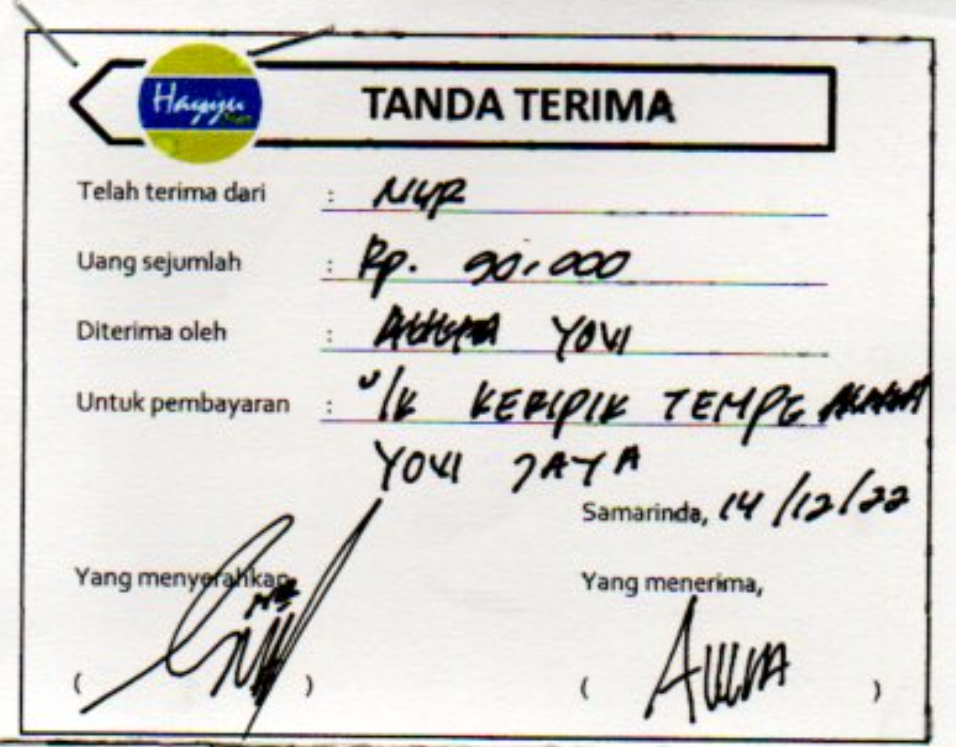 Hayyu
TANDA TERIMA
Telah terima dari : NUR
Uang sejumlah : Rp. 90.000
Diterima oleh : YOVI
Untuk pembayaran : U/K KERIPIK TEMPE
YOVI JAYA
Samarinda, 14/12/22
Yang menyerahkan
Yang menerima,
( )
( AULIA )